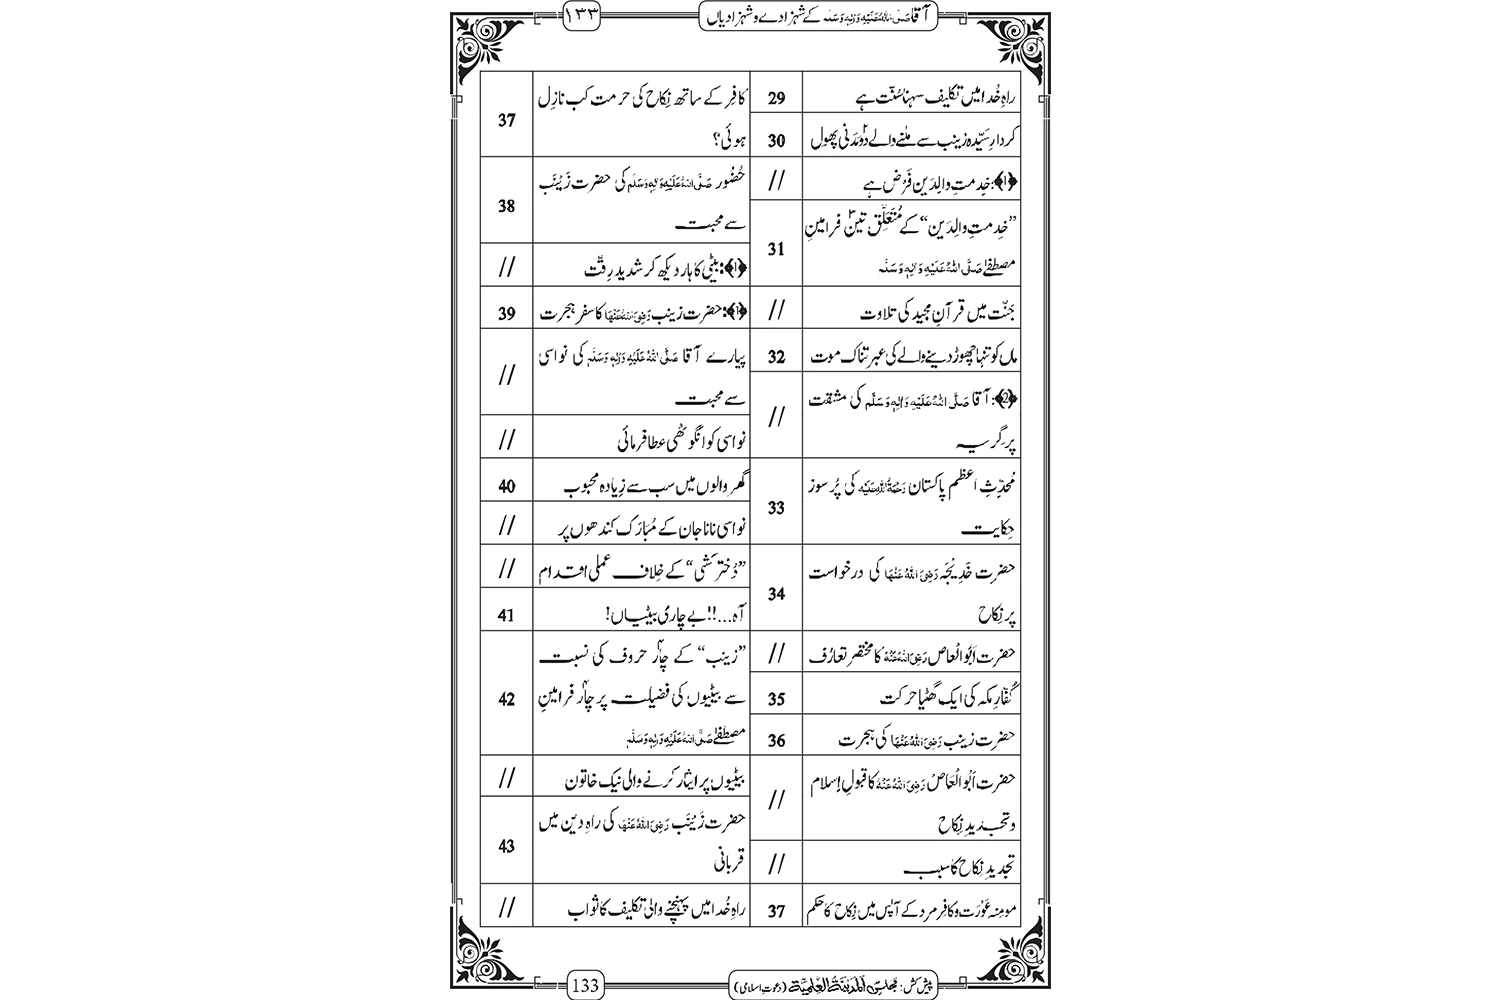 آقا صَلَّی اللہُ عَلَیْہِ وَاٰلِہٖ وَسَلَّم کے شہزادے و شہزادیاں
۱۳۳
راہِ خُدا میں تکلیف سہنا سُنّت ہے 29
کردارِ سَیِّدہ زینب سے ملنے والے دو مَدَنی پھول 30
﴿1﴾: خِدمتِ والِدَین فَرْض ہے //
”خِدمتِ والِدَین“ کے مُتَعَلِّق تین فرامینِ
مصطفےٰ صَلَّی اللہُ عَلَیْہِ وَاٰلِہٖ وَسَلَّم 31
جَنّت میں قرآنِ مجید کی تلاوت //
ماں کو تنہا چھوڑ دینے والے کی عبرتناک موت 32
﴿2﴾: آقا صَلَّی اللہُ عَلَیْہِ وَاٰلِہٖ وَسَلَّم کی مشقت
پر گِریہ //
مُحَدِّثِ اعظم پاکستان رَحْمَۃُ اللہِ عَلَیْہ کی پُرسوز
حِکایت 33
حضرت خَدِیْجَہ رَضِیَ اللہُ عَنْہَا کی درخواست
پر نِکاح 34
حضرت اَبُوالْعاص رَضِیَ اللہُ عَنْہُ کا مختصر تعارُف //
کُفّارِ مکہ کی ایک گھٹیا حرکت 35
حضرت زینب رَضِیَ اللہُ عَنْہَا کی ہجرت 36
حضرت اَبُوالْعَاصْ رَضِیَ اللہُ عَنْہُ کا قبولِ اِسلام
و تجدیدِ نِکاح //
تجدیدِ نِکاح کا سبب //
مومِنہ عَوْرَت و کافِر مرد کے آپس میں نِکاح کا حکم 37
کافِر کے ساتھ نِکاح کی حرمت کب نازِل
ہوئی؟ 37
حُضُور صَلَّی اللہُ عَلَیْہِ وَاٰلِہٖ وَسَلَّم کی حضرت زَیْنَب
سے محبت 38
﴿1﴾: بیٹی کا ہار دیکھ کر شدید رِقّت //
﴿1﴾: حضرت زینب رَضِیَ اللہُ عَنْہَا کا سفرِ ہجرت 39
پیارے آقا صَلَّی اللہُ عَلَیْہِ وَاٰلِہٖ وَسَلَّم کی نواسی
سے محبت //
نواسی کو انگوٹھی عطا فرمائی //
گھر والوں میں سب سے زِیادہ محبوب 40
نواسی نانا جان کے مُبارَک کندھوں پر //
”دُختر کَشی“ کے خِلاف عملی اقدام //
آہ...!! بے چاری بیٹیاں! 41
”زینب“ کے چار حروف کی نسبت
سے بیٹیوں کی فضیلت پر چار فرامینِ
مصطفےٰ صَلَّی اللہُ عَلَیْہِ وَاٰلِہٖ وَسَلَّم 42
بیٹیوں پر ایثار کرنے والی نیک خاتون //
حضرت زَیْنَب رَضِیَ اللہُ عَنْہَا کی راہِ دین میں
قربانی 43
راہِ خُدا میں پہنچنے والی تکلیف کا ثواب //
پیش کش: مجلس اَلْمَدِیْنَۃُ الْعِلْمِیَّۃ (دعوتِ اسلامی)
133